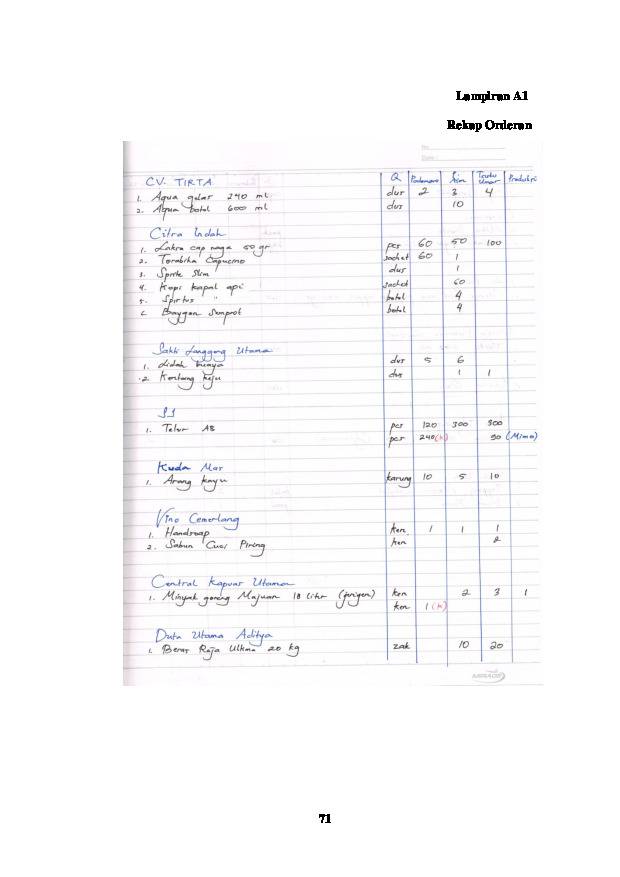 Lampiran A1
Rekap Orderan
No.
Date
Q Podomoro S. Alm Teuku Umar Produksi
CV. TIRTA
1. Aqua gelas 240 ml dus 2 3 4
2. Aqua botol 600 ml dus 10
Citra Indah
1. Lakra cap naga 50 gr pcs 60 50 100
2. Torabika Capucino sachet 60 1
3. Sprite Slim dus 1
4. Kopi kapal api sachet 60
5. Spirtus " botol 4
6. Baygon Semprot botol 4
Sakti Langgeng Utama
1. Lidah buaya dus 5 6
2. Kentang keju dus 1 1
S1
1. Telur AB pcs 120 300 300
pcs 240 (K) 90 (Mimo)
Kuda Mas
1. Arang kayu karung 10 5 10
Vino Cemerlang
1. Handsoap ken 1 1 1
2. Sabun Cuci Piring ken 2
Central Kapuas Utama
1. Minyak goreng Majuan 18 liter (jerigen) ken 2 3 1
ken 1 (K)
Duta Utama Aditya
1. Beras Raja Ulkma 20 kg zak 10 20
MIRAGE
71